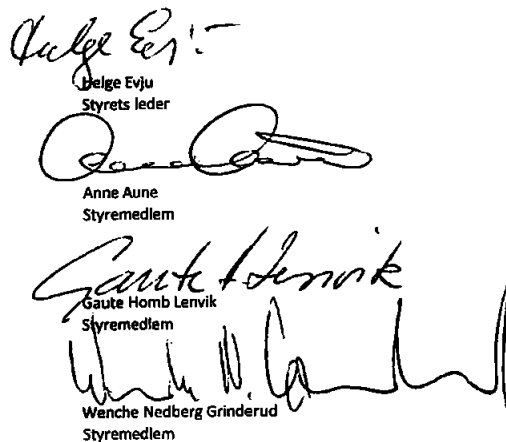 Helge Evju
Styrets leder
Anne Aune
Styremedlem
Gaute Homb Lenvik
Styremedlem
Wenche Nedberg Grinderud
Styremedlem